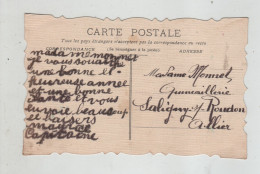 CARTE POSTALE
Tous les pays étrangers n'acceptent pas la correspondance au recto
CORRESPONDANCE
(Se renseigner à la poste)
ADRESSE
madame monnet
je vous souaite
une bonne et
heureuse année
et une bonne
santé et vous
envoie beaucoup
de baisers
Madame Monnet
Quincaillerie
Saligny s/ Roudon
Allier